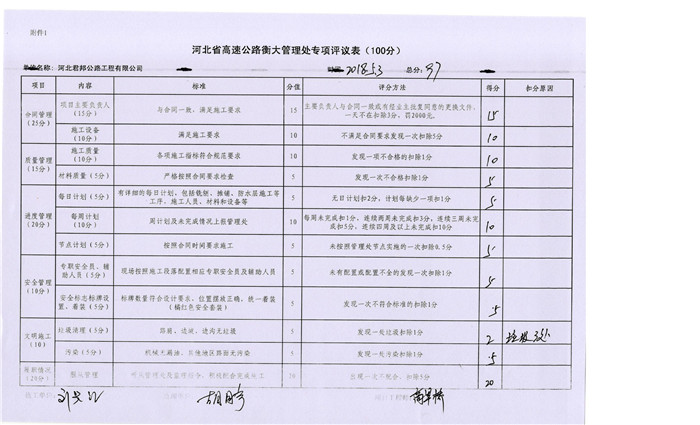 附件1
河北省高速公路衡大管理处专项评议表（100分）
单位名称：河北君邦公路工程有限公司 2018.5.3 总分：97
项目 内容 标准 分值 评分方法 得分 扣分原因
合同管理（25分） 项目主要负责人（15分） 与合同一致，满足施工要求 15 主要负责人与合同一致或有经业主批复同意的更换文件，一天不在扣除3分，罚2000元. 15
施工设备（10分） 满足施工要求 10 不满足合同要求发现一次扣除5分 10
质量管理（15分） 施工质量（10分） 各项施工指标符合规范要求 10 发现一项不合格的扣除1分 10
材料质量（5分） 严格按照合同要求检查 5 发现一次不合格扣除1分 5
进度管理（20分） 每日计划（5分） 有详细的每日计划，包括铣刨、摊铺、防水层施工等工序，施工人员、材料和设备等 5 无日计划扣2分，计划每缺少一项扣1分 5
每周计划（10分） 周计划及未完成情况上报管理处 10 每周未完成扣1分，连续两周未完成扣3分，连续三周未完成扣5分，连续四周及以上未完成扣10分 10
节点计划（5分） 按照合同时间要求施工 5 未按照管理处节点实施的一次扣除0.5分 5
安全管理（10分） 专职安全员，辅助人员（5分） 现场按照施工段落配置相应专职安全员及辅助人员 5 未有配置或配置不全的发现一次扣除1分 5
安全标志标牌设置，着装（5分） 标牌数量符合设计要求，位置摆放正确，统一着装（橘红色安全套装） 5 发现一次不符合标准的扣除1分 5
文明施工（10） 垃圾清理（5分） 路面、边坡、边沟无垃圾 5 发现一处垃圾扣除1分 2 垃圾3处
污染（5分） 机械无漏油，其他地区路面无污染 5 发现一处污染扣除1分 5
（20分） 服从管理 20 出现一次不配合，扣除5分 20
施工单位：